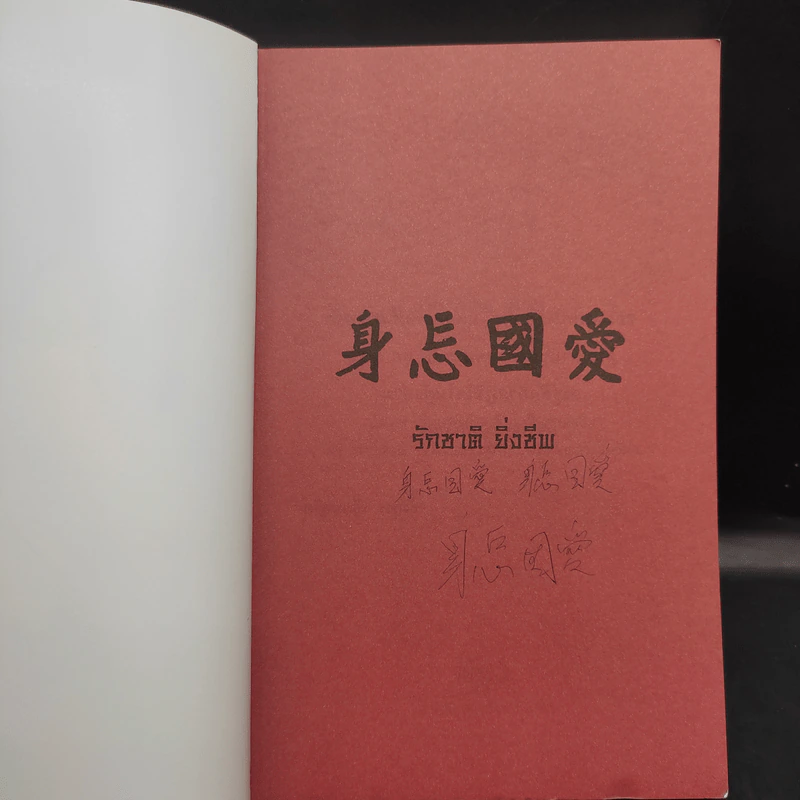 愛國忘身
รักชาติ ยิ่งชีพ
愛国忘身 愛国忘身
愛国忘身